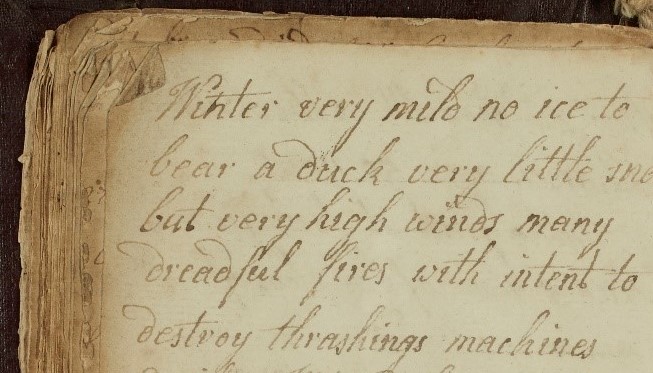 Winter very mild no ice to
bear a duck very little sno
but very high winds many
dreadful fires with intent to
destroy thrashings machines